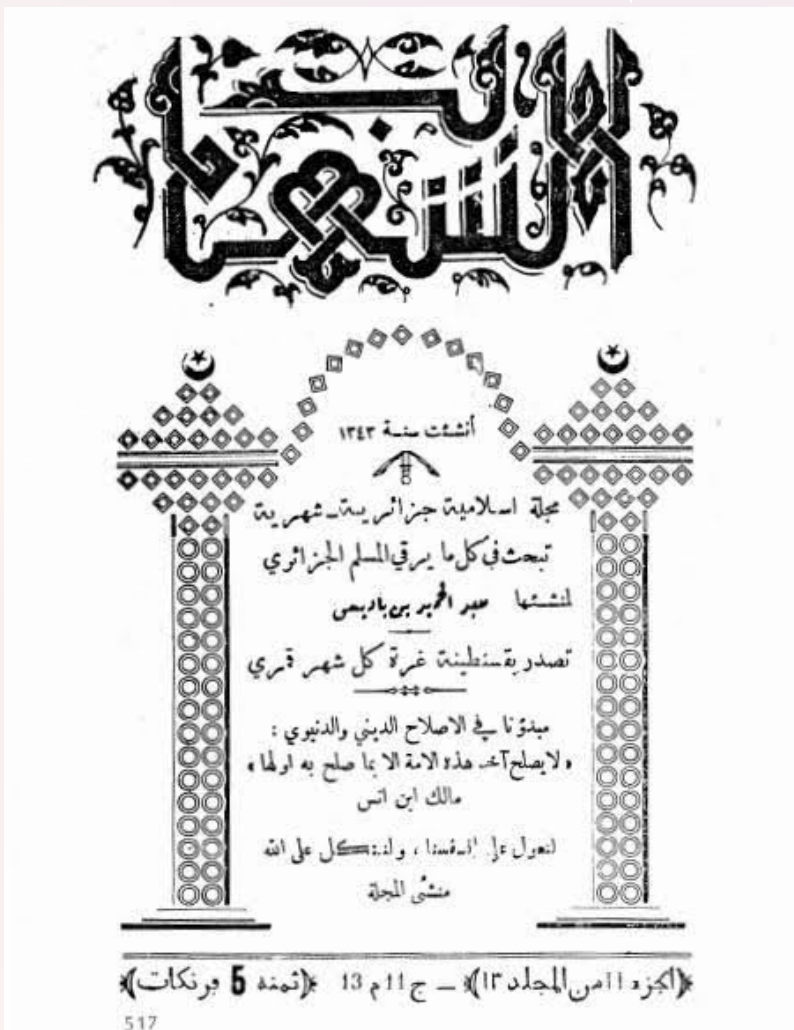 الشهاب
أنشئت سنة ١٣٤٣
مجلة اسلامية جزائرية - شهرية
تبحث في كل ما يرقي المسلم الجزائري
لمنشئها عبد الحميد بن باديس
تصدر بقسنطينة غرة كل شهر قمري
مبدؤنا في الاصلاح الديني والدنيوي :
« لا يصلح آخر هذه الامة الا بما صلح به اولها »
مالك ابن انس
لنعول على انفسنا ، ولنتكل على الله
منشئ المجلة
﴿الجزء ١١ من المجلد ١٣﴾ ـ ج 11 م 13 ﴿ثمنه 5 فرنكات﴾
517